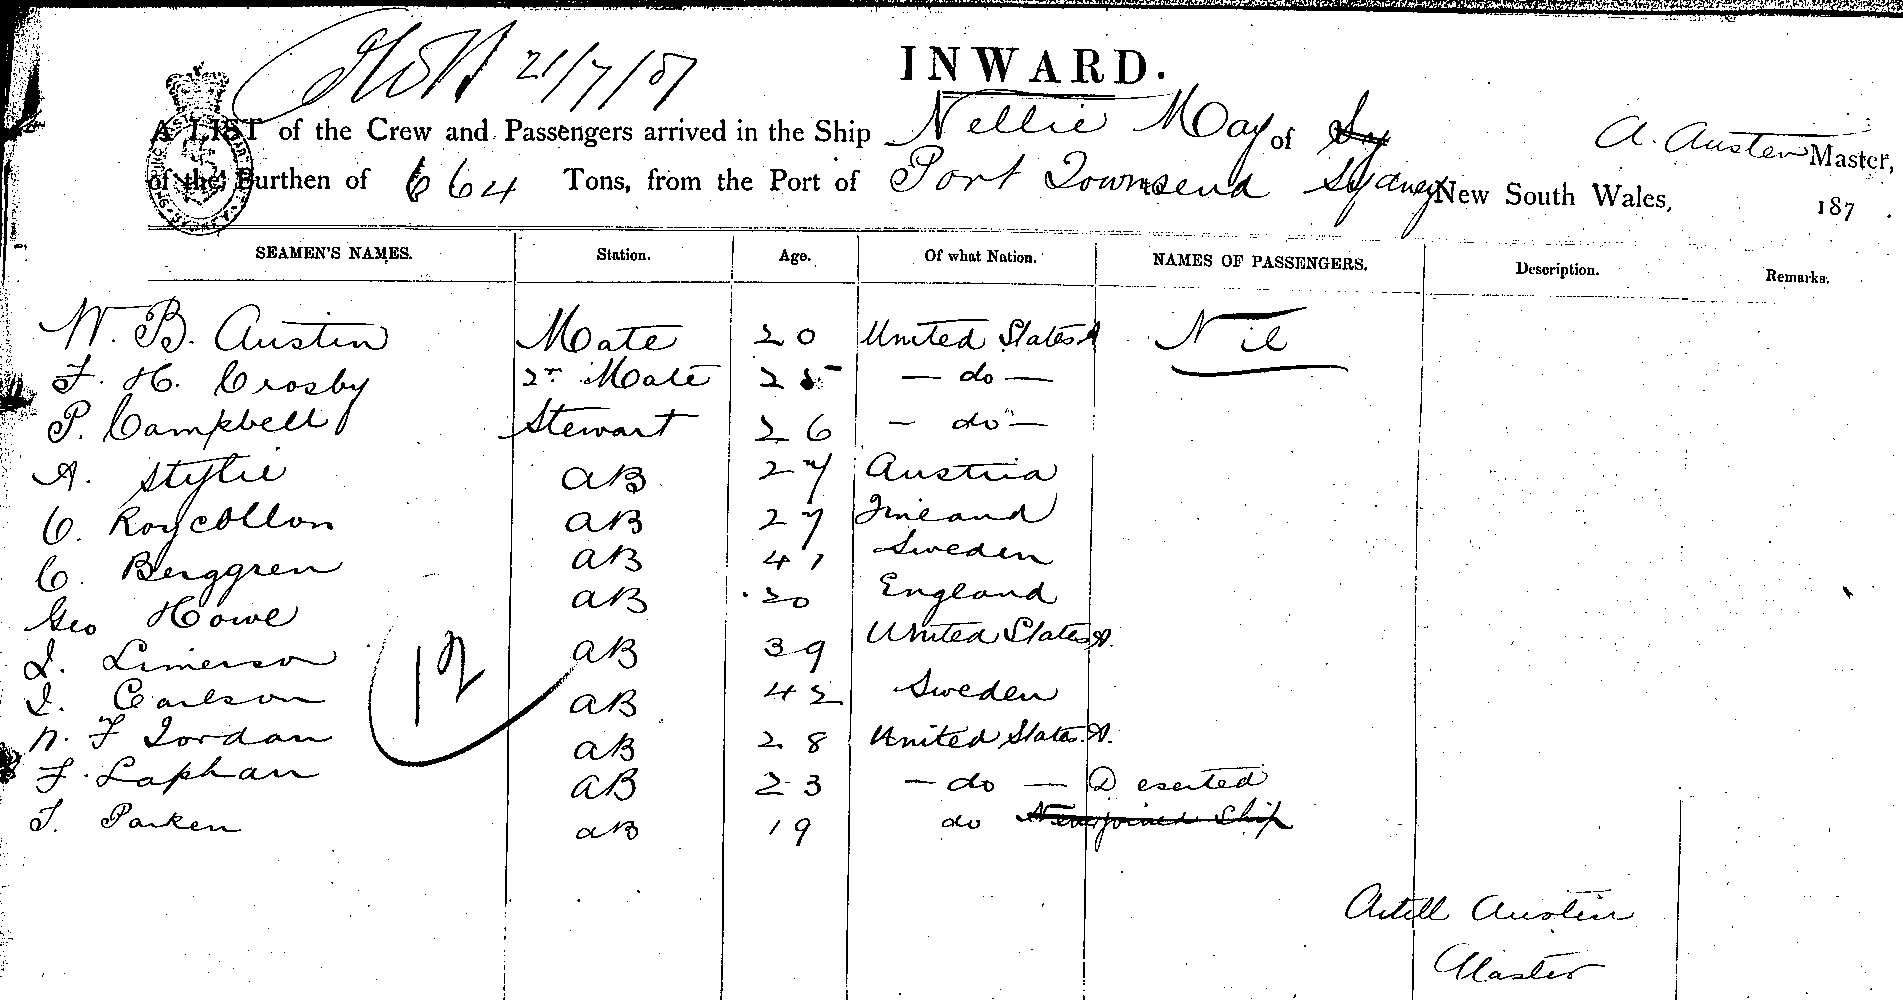 21/7/87
INWARD.
A LIST of the Crew and Passengers arrived in the Ship Nellie May of Sy A. Austen Master,
of the Burthen of 664 Tons, from the Port of Port Townsend Sydney New South Wales, 187 .
SEAMEN'S NAMES. Station. Age. Of what Nation. NAMES OF PASSENGERS. Description. Remarks.
W. B. Austin Mate 20 United States A Nil
F. H. Crosby 2nd Mate 25 — do —
P. Campbell Stewart 26 — do —
A. Stylie AB 27 Austria
C. Roycollon AB 27 Finland
C. Berggren AB 41 Sweden
Geo Howe AB 20 England
I. Limerson AB 39 United States A.
I. Carlson AB 42 Sweden
12
N. F Jordan AB 28 United States A.
F. Laphan AB 23 — do — Deserted
T. Parken AB 19 do Never joined Ship
Austin
Master